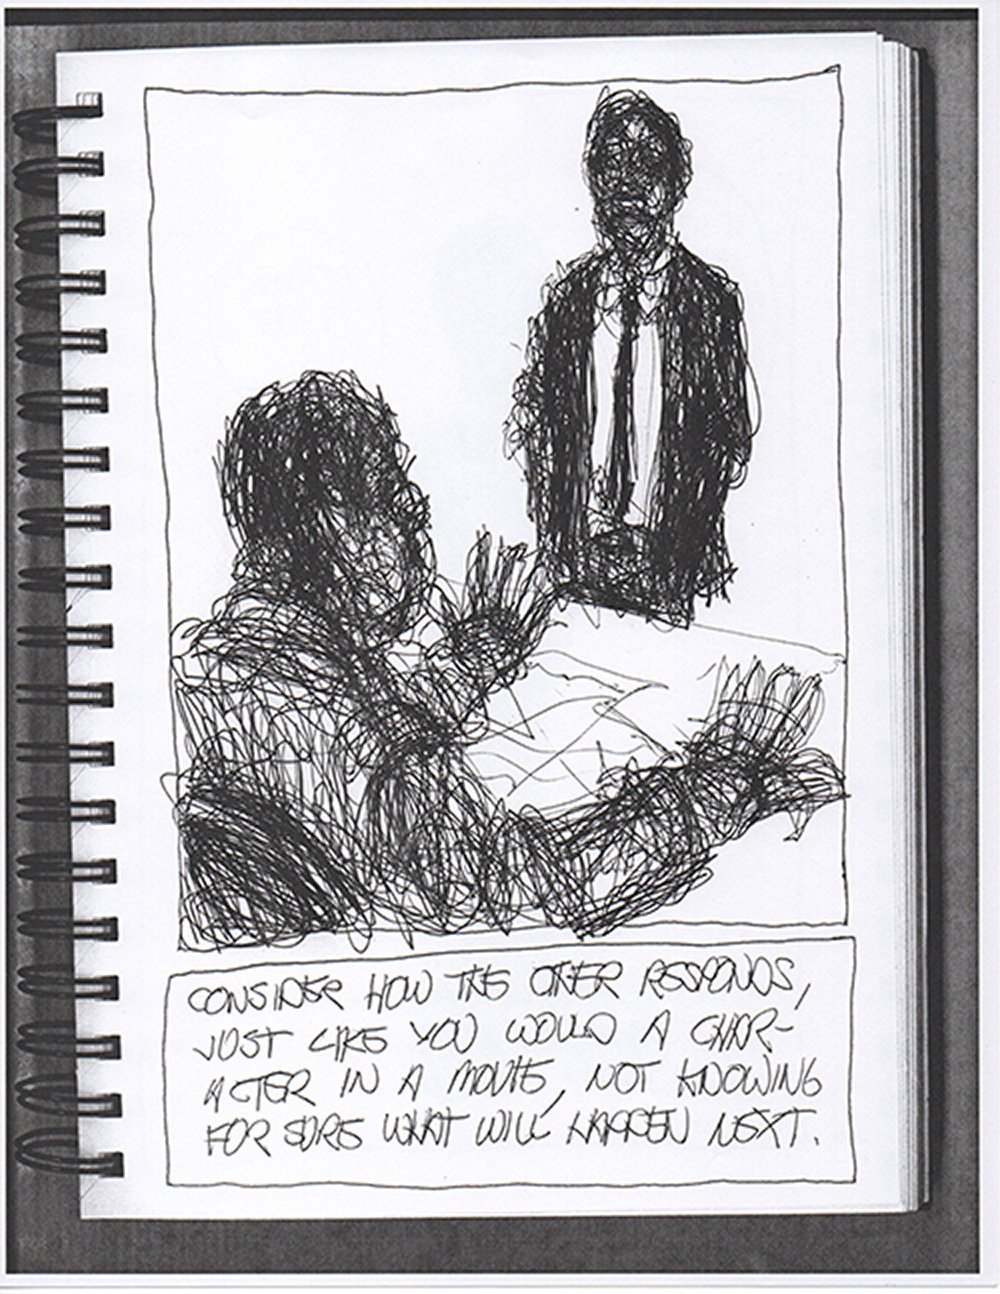 CONSIDER HOW THE OTHER RESPONDS,
JUST LIKE YOU WOULD A CHAR-
ACTER IN A MOVIE, NOT KNOWING
FOR SURE WHAT WILL HAPPEN NEXT.